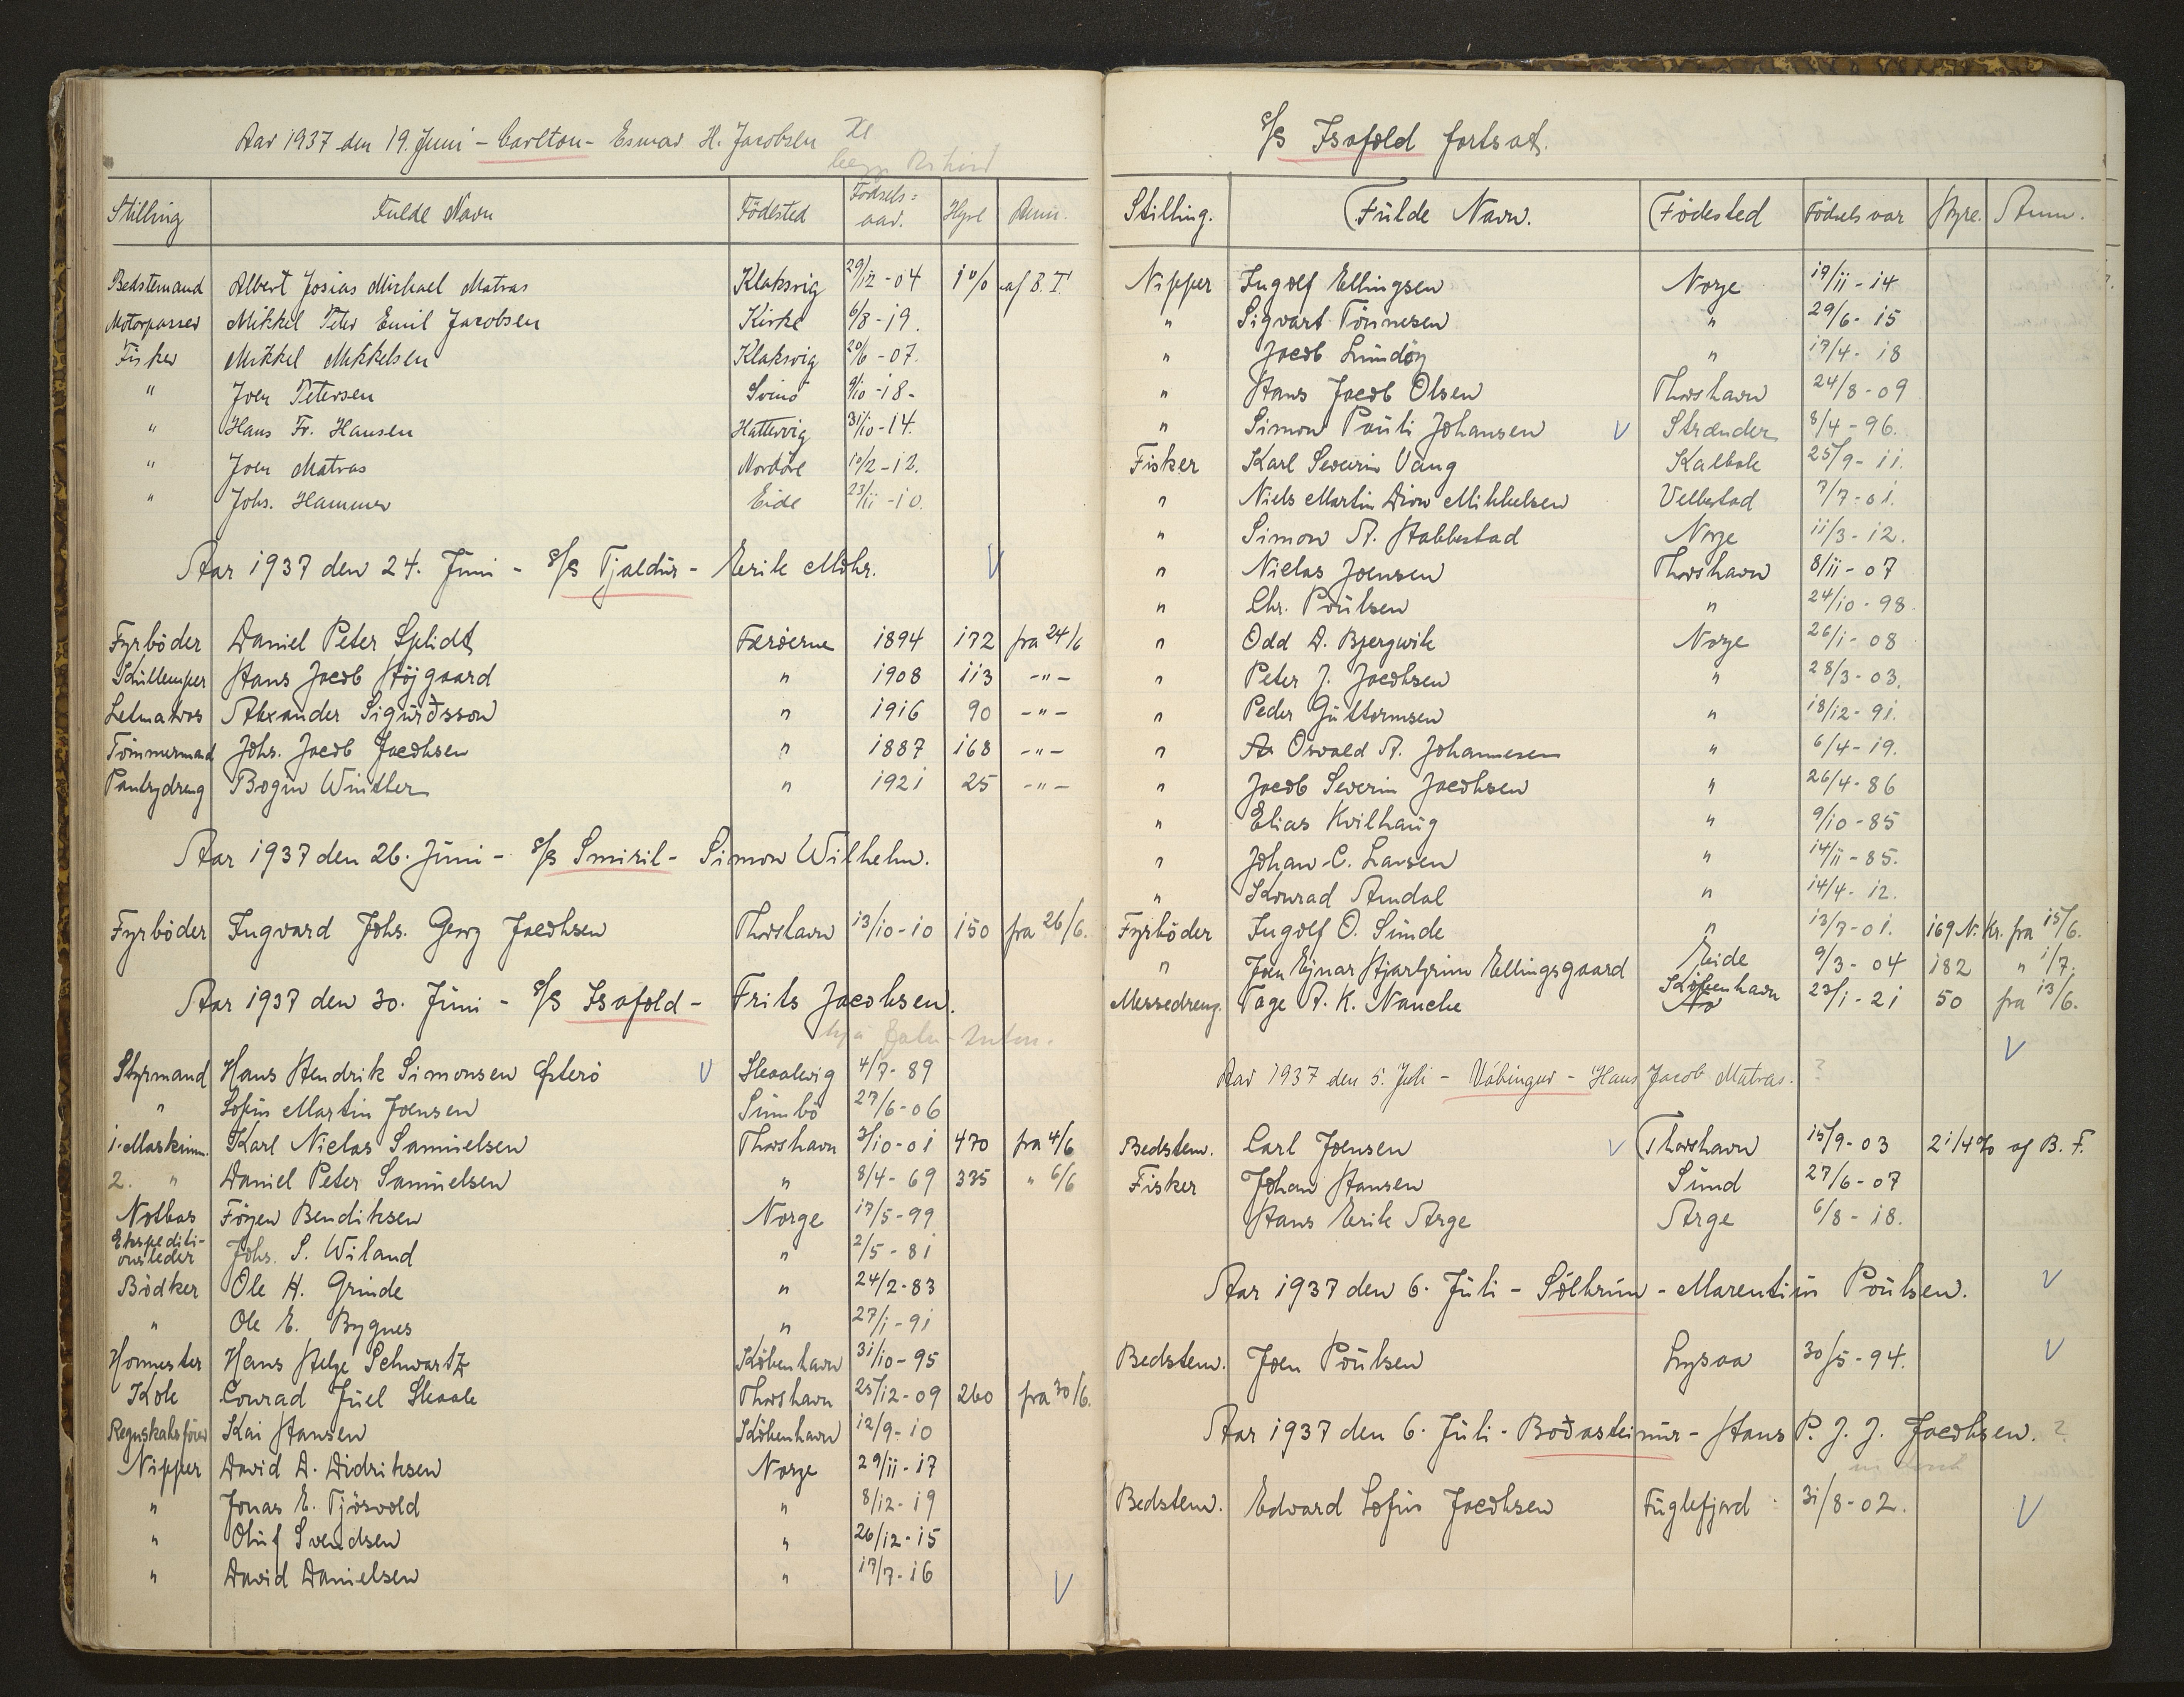 Aar 1937 den 19. Juni - Carlton - Esmar H. Jacobsen
Stilling Fulde Navn Födested Födsels= aar. Hyre Anm.
Bedstemand Albert Josias Michael Matras Klaksvig 29/12-04 1% af B. F.
Motorpasser Mikkel Peter Emil Jacobsen Kirke 6/8-19.
Fisker Mikkel Mikkelsen Klaksvig 20/6-07.
" Joen Petersen Svinö 9/10-18.
" Hans Fr. Hansen Hattervig 31/10-14.
" Joen Matras Nordöre 10/2-12.
" Johs. Hammer Eide 23/11-10.
Aar 1937 den 24. Juni - s/s Tjaldur - Eerik Mohr. V
Fyrböder Daniel Peter Splidt Færöerne 1894 172 fra 24/6
Kullemper Hans Jacob Höjgaard " 1908 113 -"-
Letmatros Alexander Sigurðsson " 1916 90 -"-
Tömmermand Johs. Jacob Jacobsen " 1887 168 -"-
Pantrydreng Bogin Winther " 1921 25 -"-
Aar 1937 den 26. Juni - s/s Smiril - Simon Wilhelm.
Fyrböder Ingvard Johs. Georg Jacobsen Thorshavn 13/10-10 150 fra 26/6.
Aar 1937 den 30. Juni - s/s Isafold - Frits Jacobsen.
Styrmand Hans Hendrik Simonsen Østerö V Skaalevig 4/7-89
" Sofus Martin Joensen Sumbö 27/6-06
1. Maskinm. Karl Niclas Samuelsen Thorshavn 3/10-01 470 fra 4/6
2. " Daniel Peter Samuelsen " 8/4-69 335 " 6/6
Notbas Föyen Bendiksen Norge 17/5-99
Ekspeditionsleder Johs. S. Wiland " 2/5-81
Bödker Ole H. Grinde " 24/2-83
" Ole E. Bygnes " 27/1-91
Hovmester Hans Helge Schwartz Köbenhavn 31/10-95
Kok Conrad Juel Skaale Thorshavn 25/12-09 260 fra 30/6.
Regnskabsförer Kai Hansen Köbenhavn 12/9-10
Nipper David D. Didriksen Norge 29/11-17
" Jonas E. Tjösvold " 8/12-19
" Oluf Svendsen " 26/12-15
" David Danielsen " 17/7-16 V
s/s Isafold fortsat.
Stilling. Fulde Navn. Födested Födselsaar Hyre. Anm.
Nipper Ingolf Ellingsen Norge 19/11-14
" Sigvart Tönnesen " 29/6-15
" Jacob Lundöy " 17/4-18
" Hans Jacob Olsen Thorshavn 24/8-09
" Simon Pauli Johansen V Strænder 8/4-96.
Fisker Karl Severin Vang Kalbak 25/9-11.
" Niels Martin Dion Mikkelsen Velbestad 7/7-01.
" Simon A. Stabbestad Norge 11/3-12.
" Niclas Joensen Thorshavn 8/11-07
" Chr. Poulsen " 24/10-98.
" Odd A. Bjergwik Norge 26/1-08
" Peter J. Jacobsen " 28/3-03.
" Peder Guttormsen " 18/12-91.
" Osvald A. Johannesen " 6/4-19.
" Jacob Severin Jacobsen " 26/4-86
" Elias Kvilhaug " 9/10-85
" Johan C. Larsen " 14/11-85.
" Konrad Amdal " 14/4-12.
Fyrböder Ingolf O. Sunde " 13/7-01. 169 N. Kr. fra 15/6.
" Joen Ejnar Hjartgrim Ellingsgaard Eeide 9/3-04 182 " 1/7.
Messedreng. Tage A. K. Nauche Köbenhavn 23/1-21 50 fra 13/6.
V
Aar 1937 den 5. Juli - Vábingur - Hans Jacob Matras. ?
Bedstem. Carl Joensen V Thorshavn 15/9-03 2 1/4% af B. F.
Fisker Johan Hansen Sund 27/6-07
Hans Eerik Arge Arge 6/8-18.
Aar 1937 den 6. Juli - Sólbrún - Marentius Poulsen. V
Bedstem. Joen Poulsen Lysaa 30/5-94. V
Aar 1937 den 6. Juli - Boðasteinur - Hans P. J. J. Jacobsen. ?
Bedstem. Edvard Sofus Jacobsen Fuglefjord 31/8-02. V